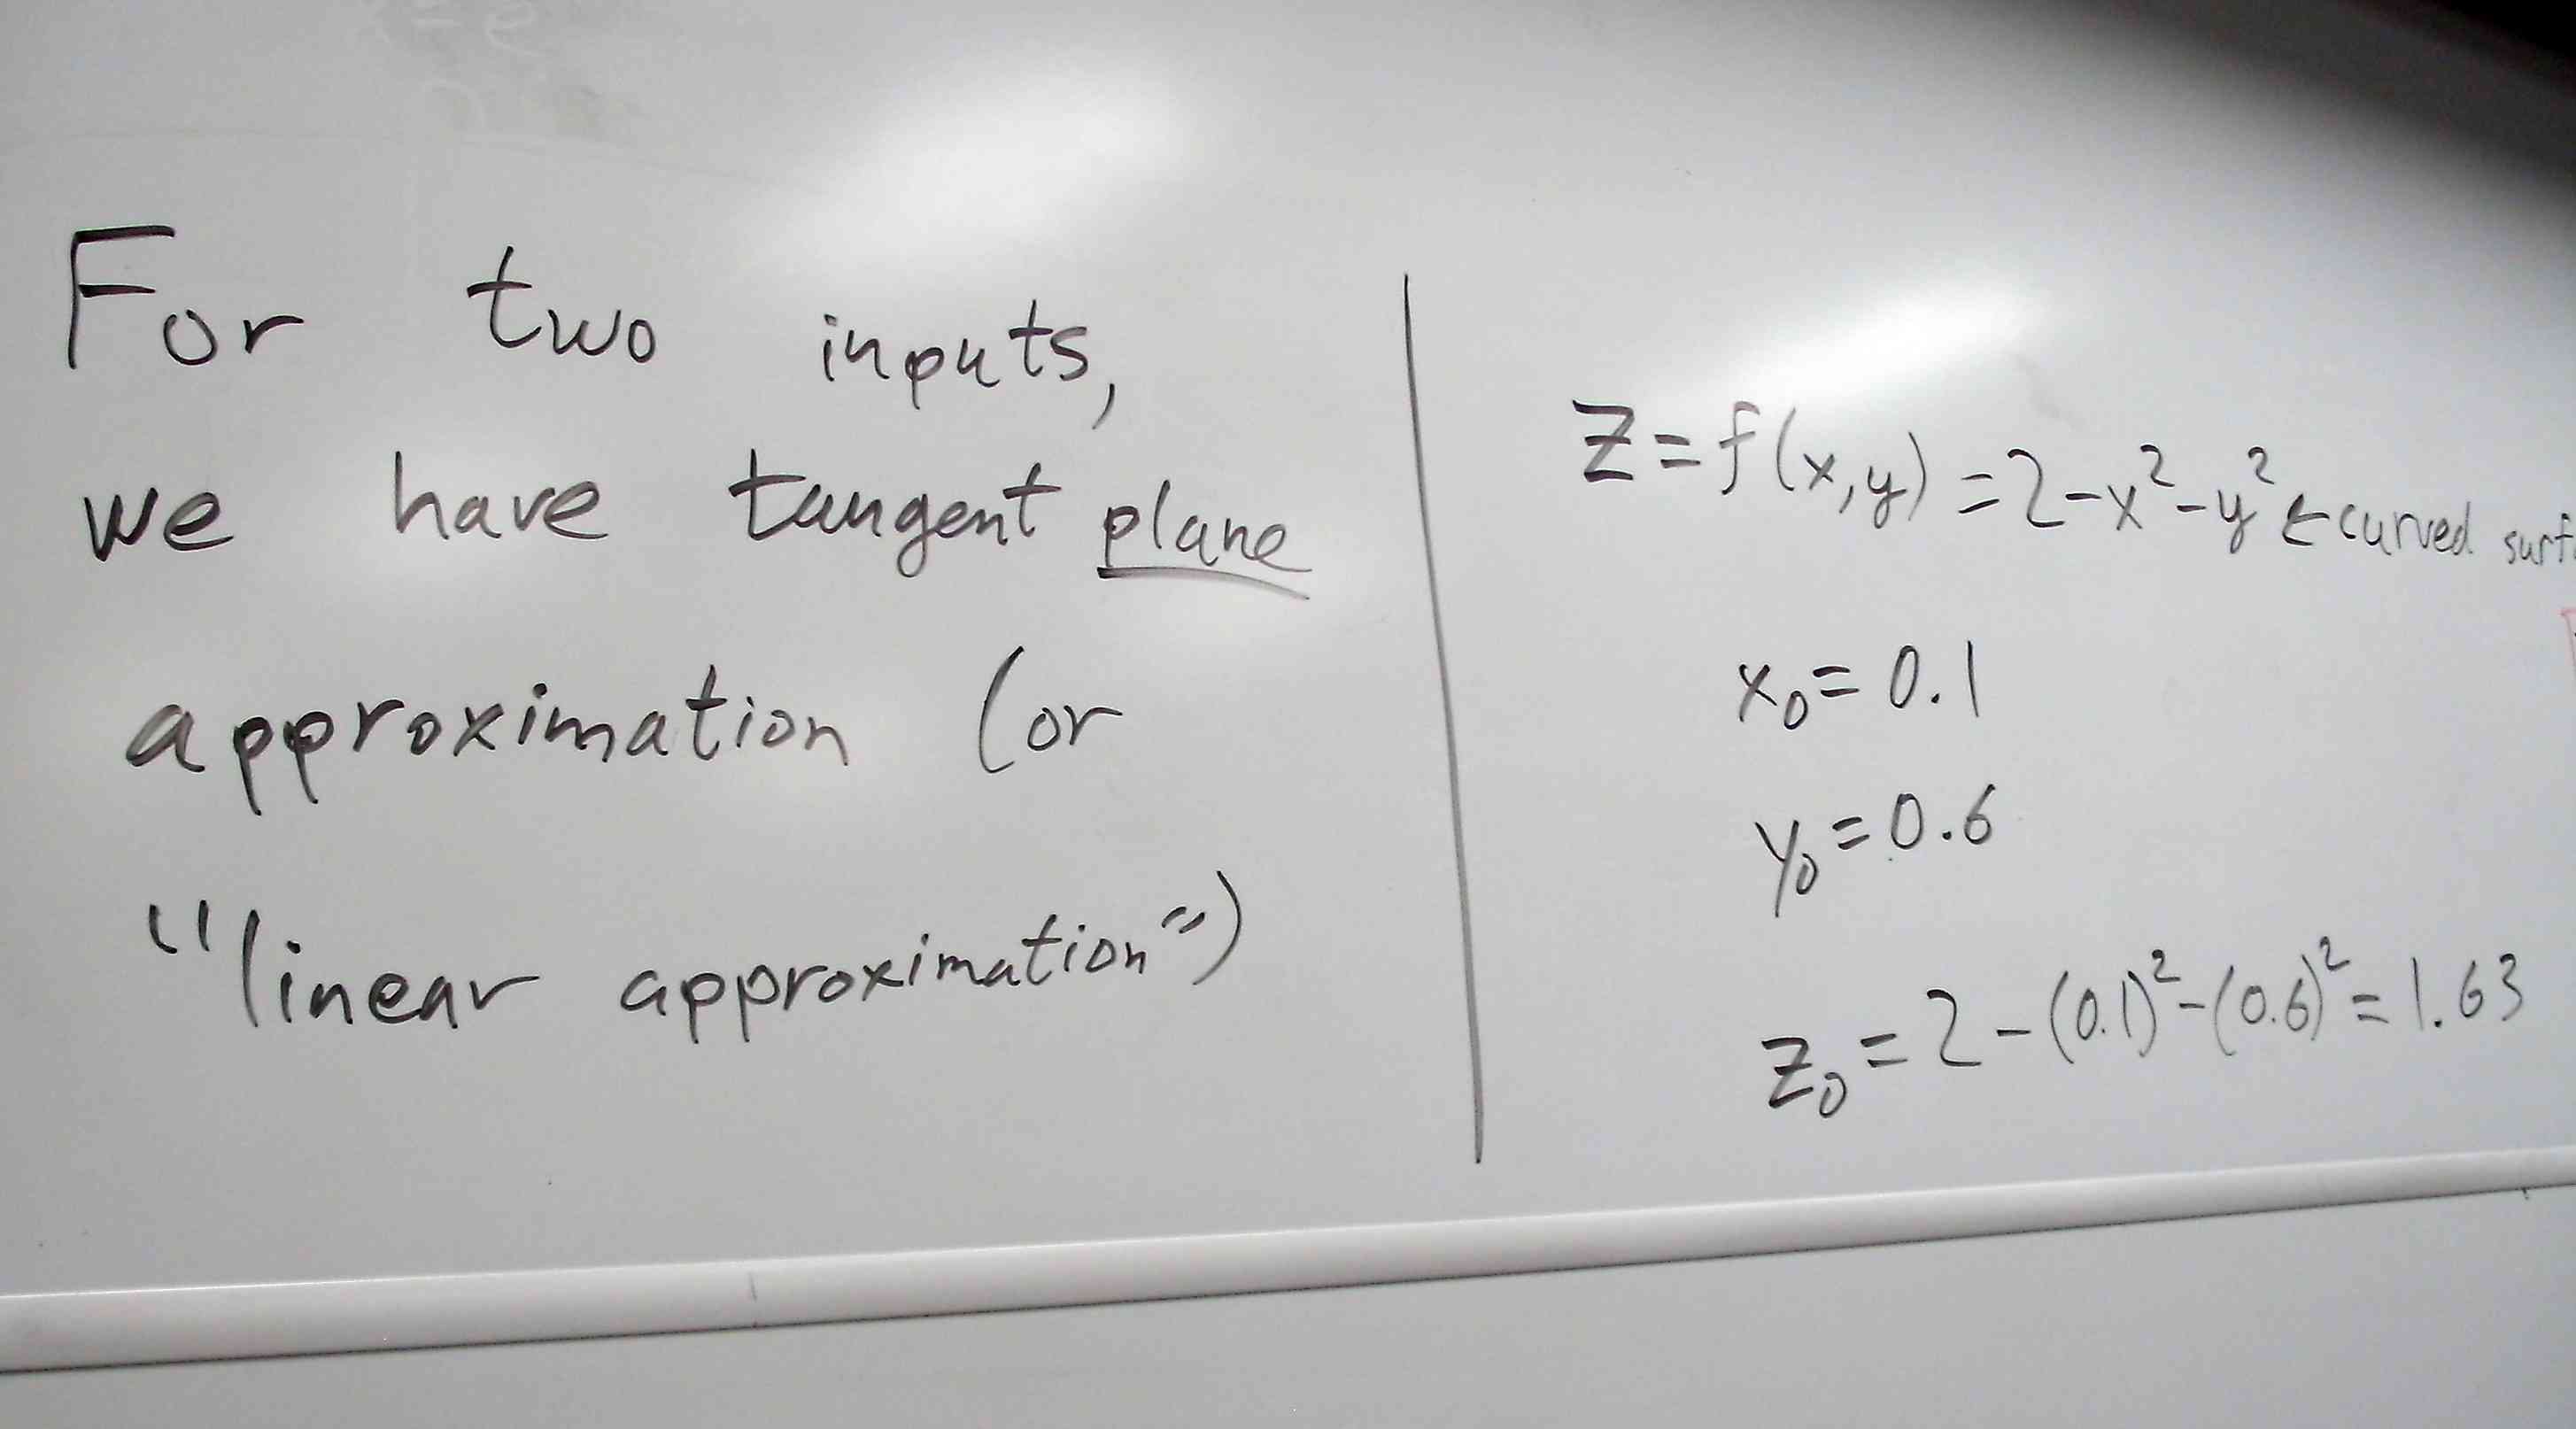 For two inputs,
we have tangent plane
approximation (or
"linear approximation")
z = f(x,y) = 2-x²-y² ← curved
x₀ = 0.1
y₀ = 0.6
z₀ = 2-(0.1)²-(0.6)² = 1.63